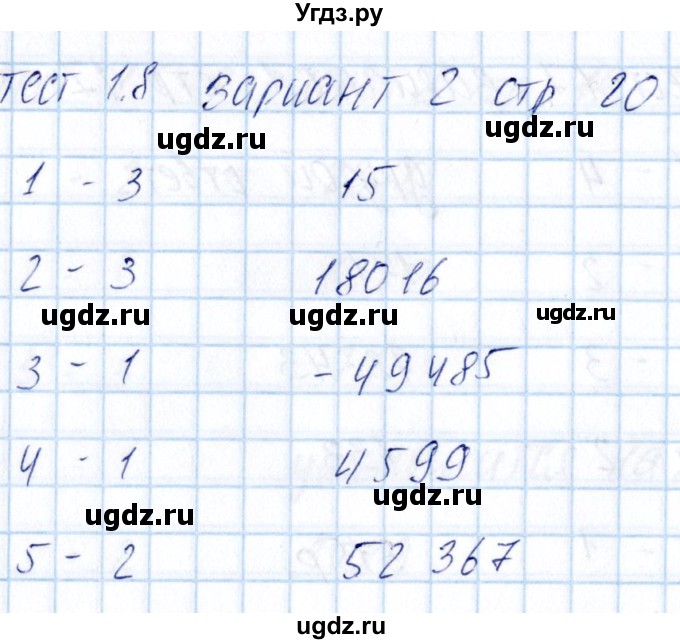 Угдз.ру
тест 1.8 вариант 2 стр 20
ugdz.ru ugdz.ru
1 - 3 15
2 - 3 18016
ugdz.ru ugdz.ru ugdz.ru
3 - 1 - 49485
4 - 1 4599
ugdz.ru ugdz.ru
5 - 2 52 367
ugdz.ru